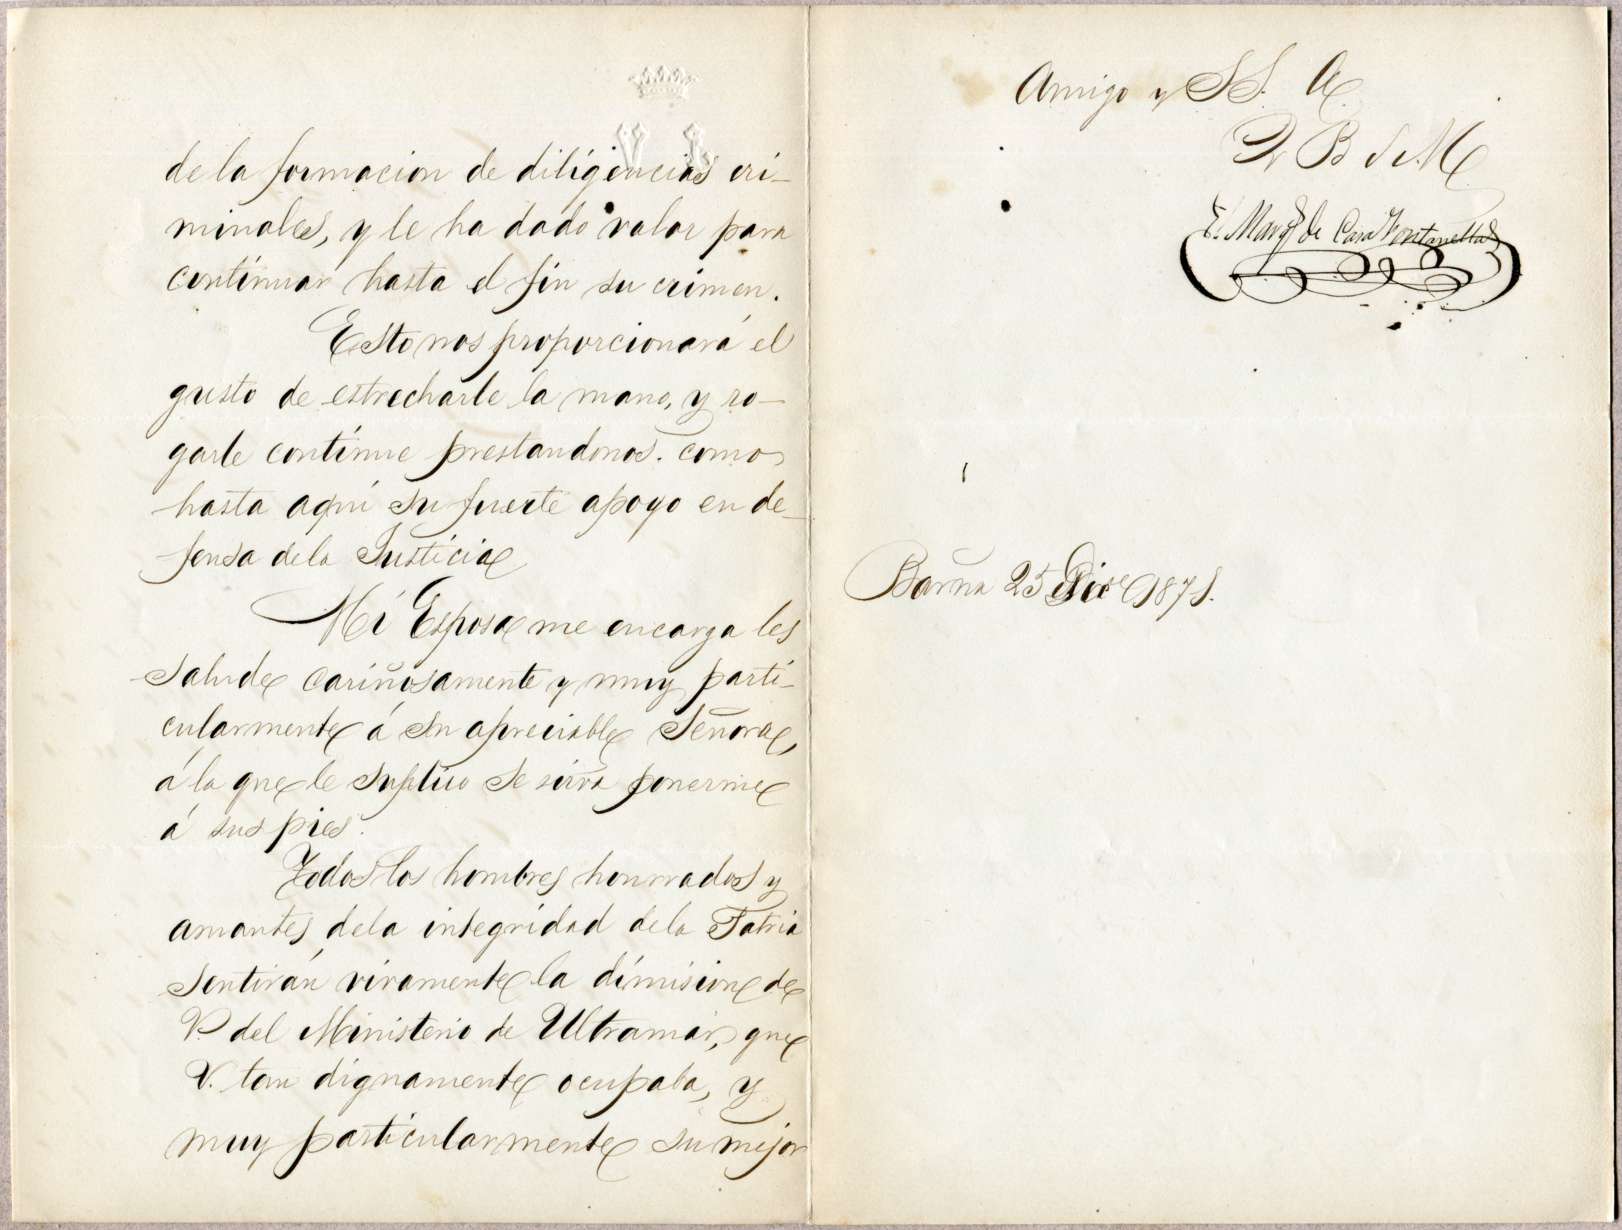 de la formacion de diligencias cri-
minales, y le ha dado valor para
continuar hasta el fin su crimen.
Esto nos proporcionará el
gusto de estrecharle la mano, y ro-
garle continue prestandonos. como
hasta aquí su fuerte apoyo en de-
fensa de la Justicia
Mi Esposa me encarga les
salude cariñosamente y muy parti-
cularmente á su apreciable Señora,
á la que le suplico se sirva ponerme
á sus pies.
Todos los hombres honrrados y
amantes de la integridad de la Patria
sentirán vivamente la dimision de
V. del Ministerio de Ultramar, que
V. tan dignamente ocupaba, y
muy particularmente su mejor
Amigo y SS. A.
Q B S M
E. Marq.s de Casa Fontanellas
Barña 25 Dice 1871.